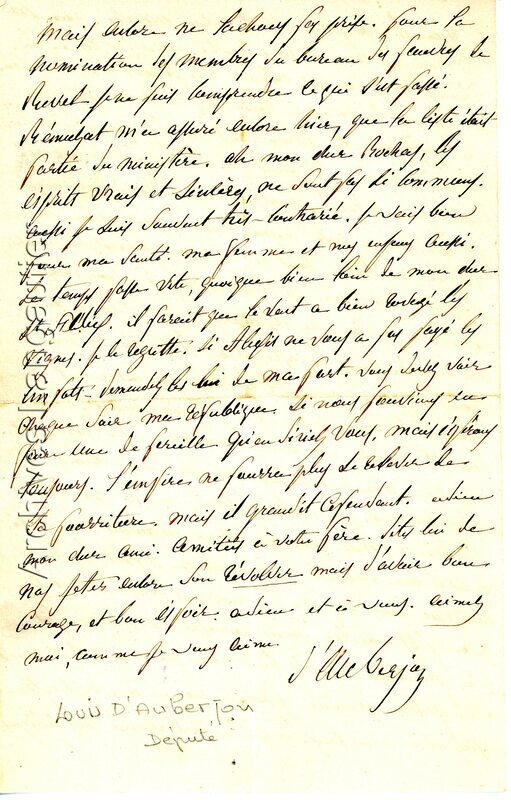 mais encore ne lachons pas prise. pour la
nomination des membres du bureau des
Revel je ne puis comprendre ce qui s'est passé.
Rémusat m'a assuré encore hier, que la liste était
partie du ministère. ah mon cher Rochas, les
esprits vrais et sincères, ne sont pas si communs.
aussi je suis souvent très-contrarié. je vais bien
pour ma santé. ma femme et mes enfans aussi.
le temps passe vite, quoique bien loin de mon cher
St il parait que le vent a bien ravagé les
vignes. je le regrette. Si Alexis ne vous a pas payé les
demandez les lui de ma part. vous devez voir
chaque soir ma République. Si nous pouvions en
une de pareille qu'en diriez vous, mais espérons
toujours. l'empire ne pourra plus se relever de
sa pourriture mais il grandit cependant. adieu
mon cher ami. amitiés à votre père. dites lui de
pas jeter encore son révolver mais d'avoir bon
courage, et bon espoir. adieu et à vous. aimez
moi, comme je vous aime
d'Auberjon
Louis D'Auberjon
Député
Archives